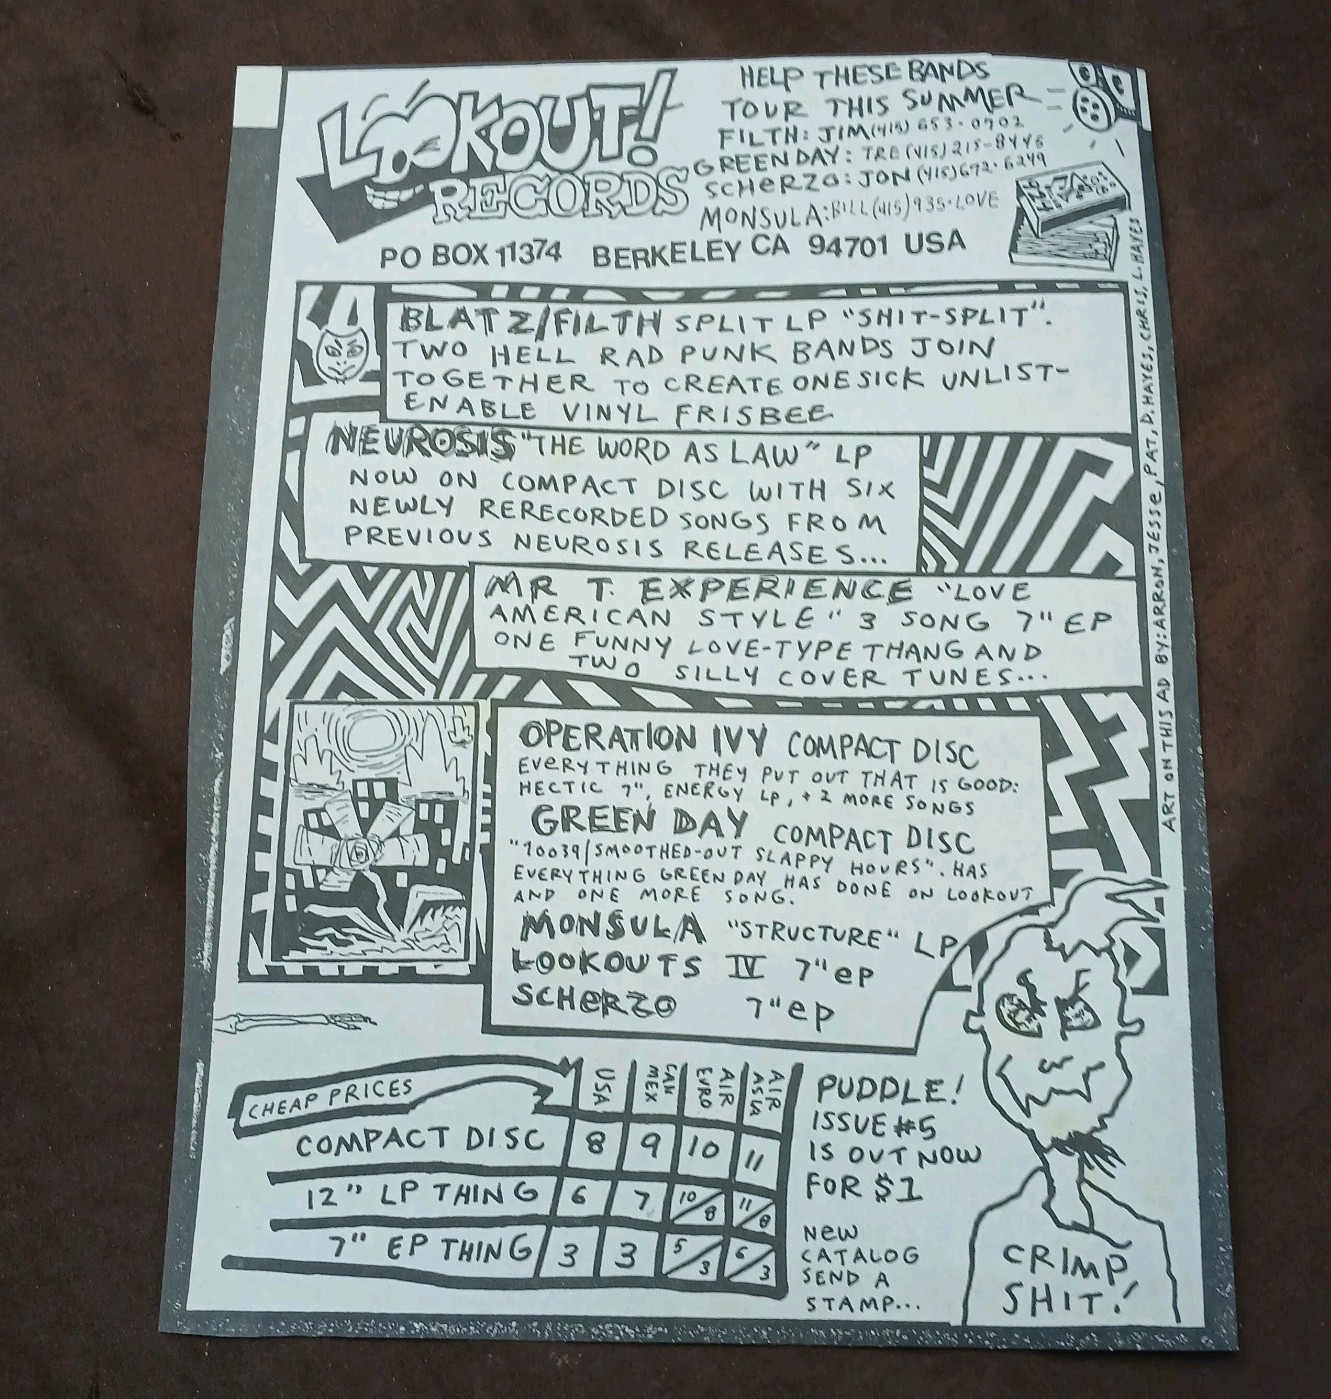 LOOKOUT!
RECORDS
HELP THESE BANDS
TOUR THIS SUMMER
FILTH: JIM (415) 653-0702
GREEN DAY: TRE (415) 215-8446
SCHERZO: JON (415) 672-6249
MONSULA: BILL (415) 935-LOVE
PO BOX 11374 BERKELEY CA 94701 USA
BLATZ/FILTH SPLIT LP "SHIT-SPLIT".
TWO HELL RAD PUNK BANDS JOIN
TOGETHER TO CREATE ONE SICK UNLIST-
ENABLE VINYL FRISBEE
NEUROSIS "THE WORD AS LAW" LP
NOW ON COMPACT DISC WITH SIX
NEWLY RERECORDED SONGS FROM
PREVIOUS NEUROSIS RELEASES...
MR T. EXPERIENCE "LOVE
AMERICAN STYLE" 3 SONG 7" EP
ONE FUNNY LOVE-TYPE THANG AND
TWO SILLY COVER TUNES...
OPERATION IVY COMPACT DISC
EVERYTHING THEY PUT OUT THAT IS GOOD:
HECTIC 7", ENERGY LP, + 2 MORE SONGS
GREEN DAY COMPACT DISC
"10039/SMOOTHED-OUT SLAPPY HOURS". HAS
EVERYTHING GREEN DAY HAS DONE ON LOOKOUT
AND ONE MORE SONG.
MONSULA "STRUCTURE" LP
LOOKOUTS IV 7" EP
SCHERZO 7" EP
ART ON THIS AD BY: ARRON, JESSE, PAT, D. HAYES, CHRIS, L. HAYES
CHEAP PRICES USA CAN MEX AIR EURO AIR ASIA
COMPACT DISC 8 9 10 11
12" LP THING 6 7 10/8 11/8
7" EP THING 3 3 5/3 6/3
PUDDLE!
ISSUE #5
IS OUT NOW
FOR $1
NEW
CATALOG
SEND A
STAMP...
CRIMP
SHIT!